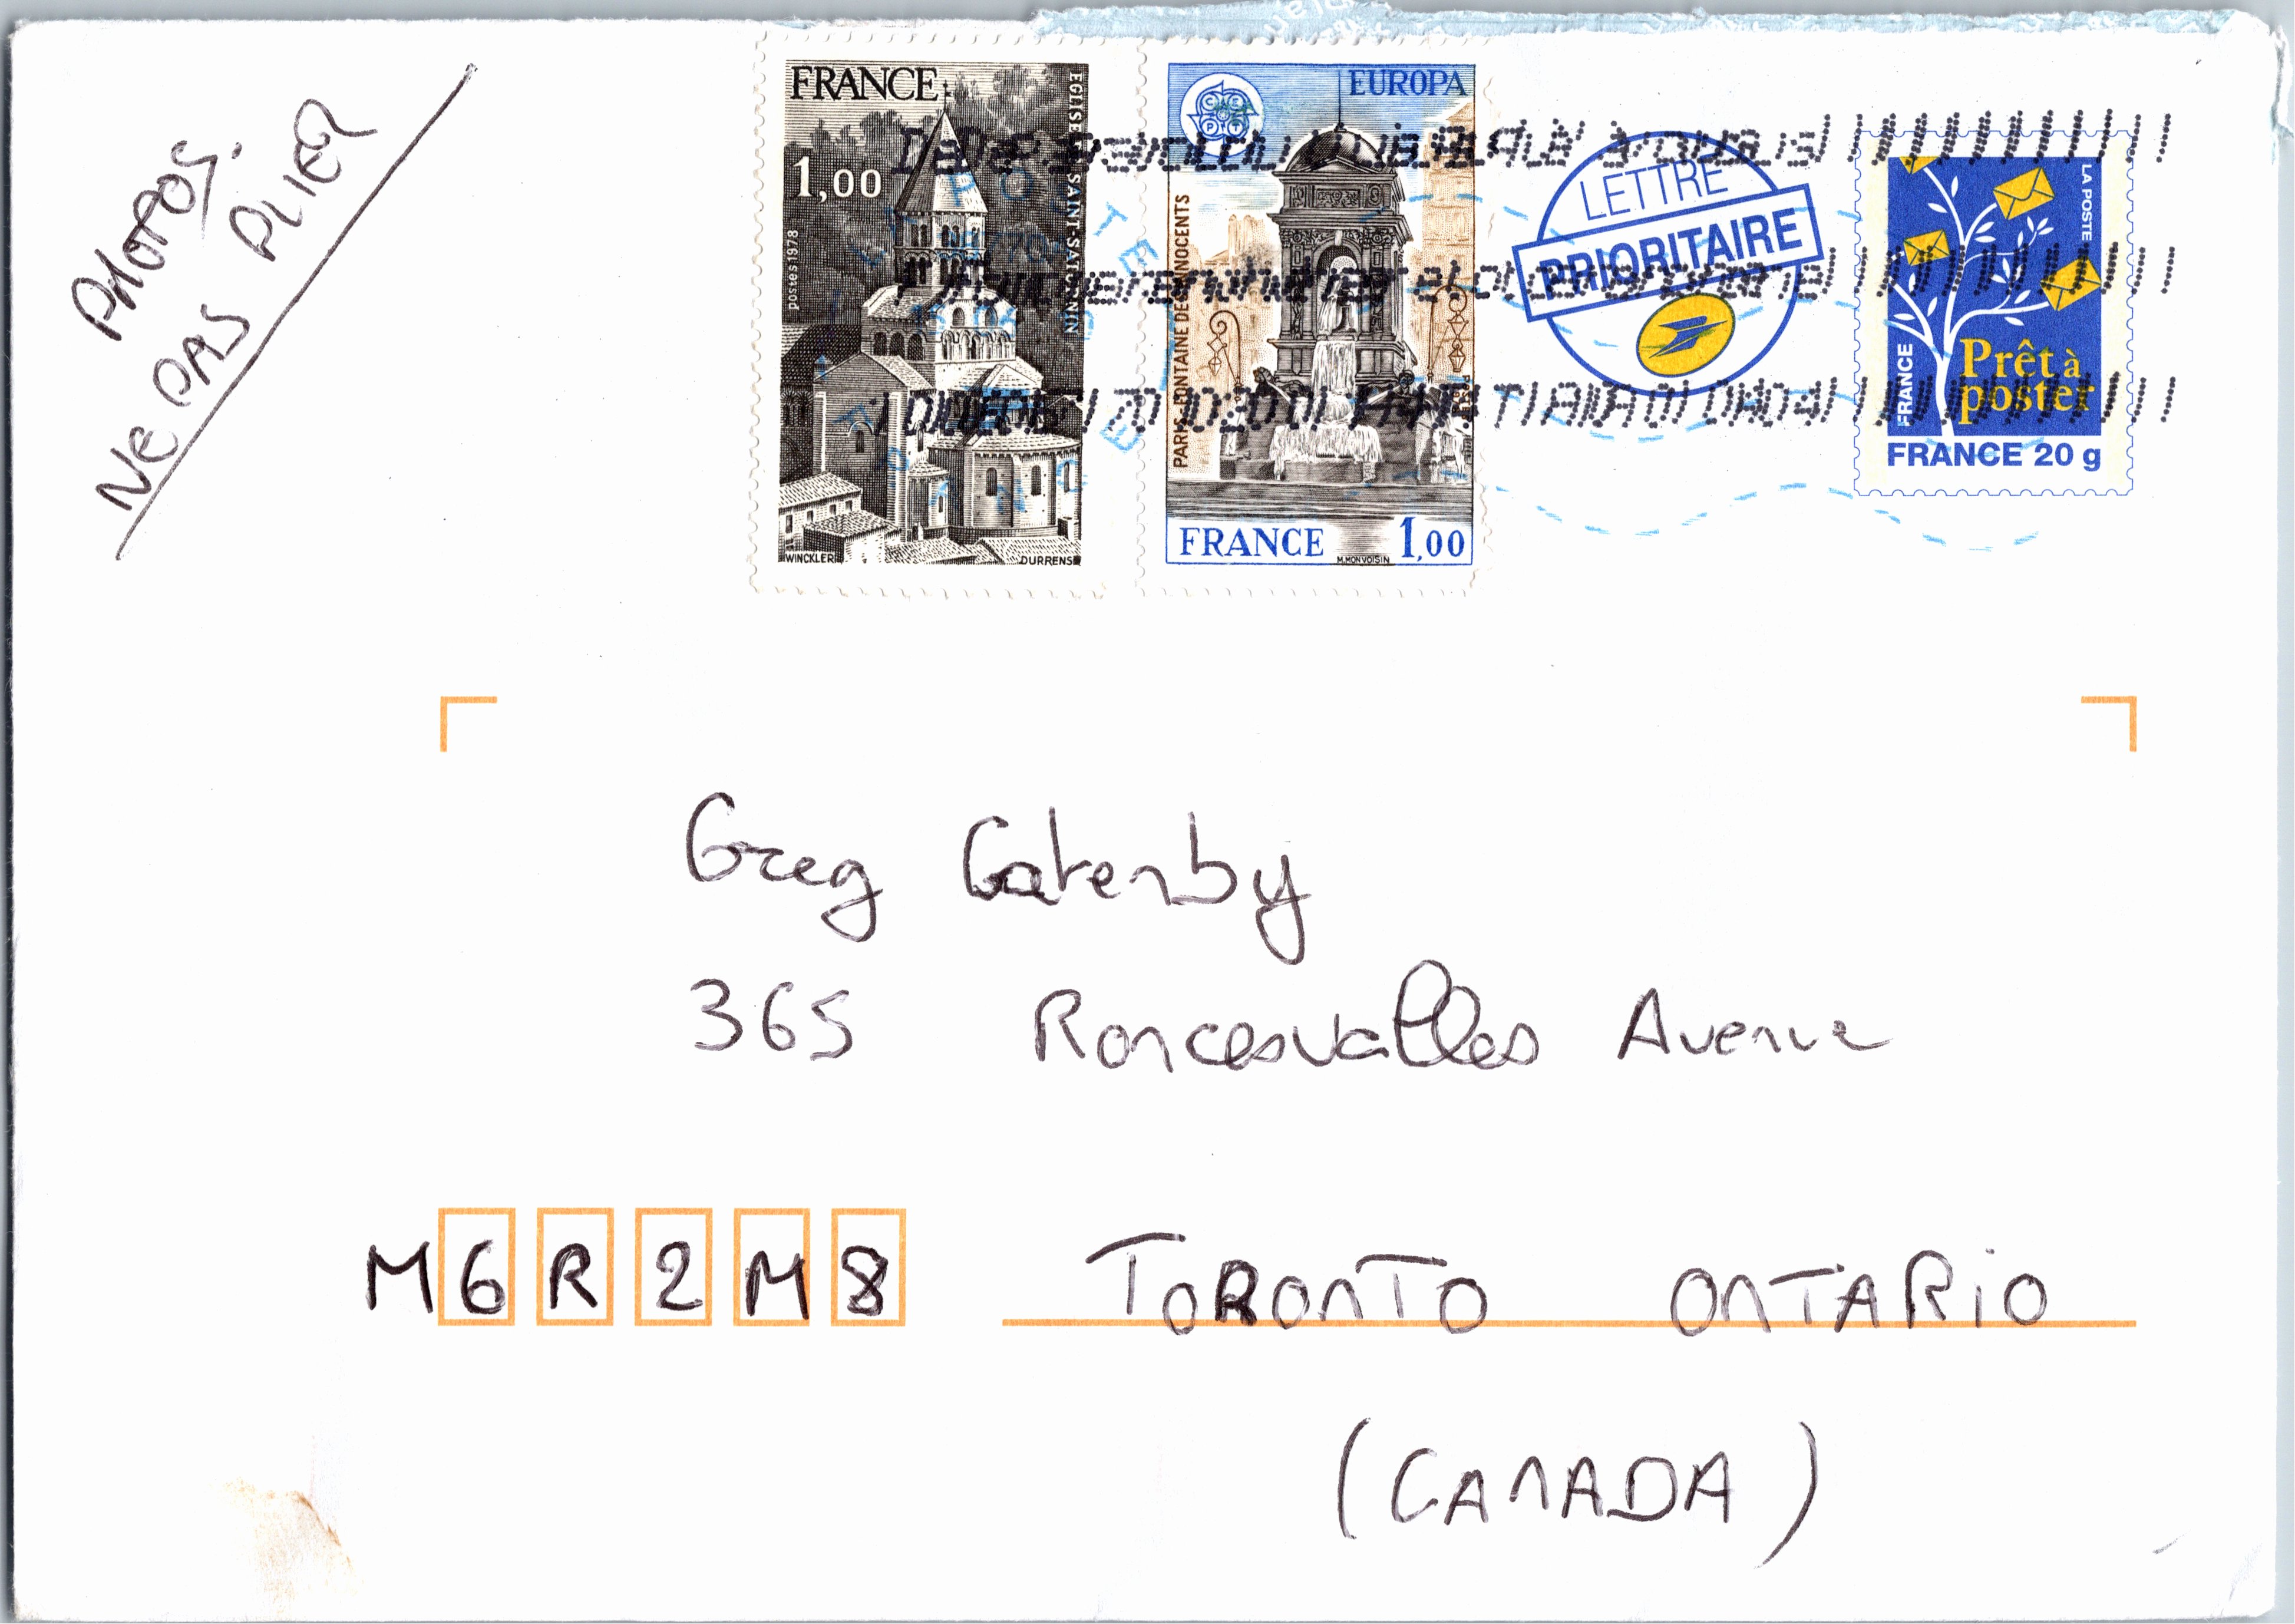 PHOTOS.
NE PAS PLIER
FRANCE
1,00
postes 1978
EGLISE SAINT-SATURNIN
WINCKLER
DURRENS
EUROPA
CEPT
PARIS-FONTAINE DES INNOCENTS
FRANCE 1,00
M.MONVOISIN
LETTRE
PRIORITAIRE
LA POSTE
FRANCE
Prêt à
poster
FRANCE 20 g
LA POSTE
FRANCE
Greg Gatenby
365 Roncesvalles Avenue
M6R2M8 TORONTO ONTARIO
(CANADA)